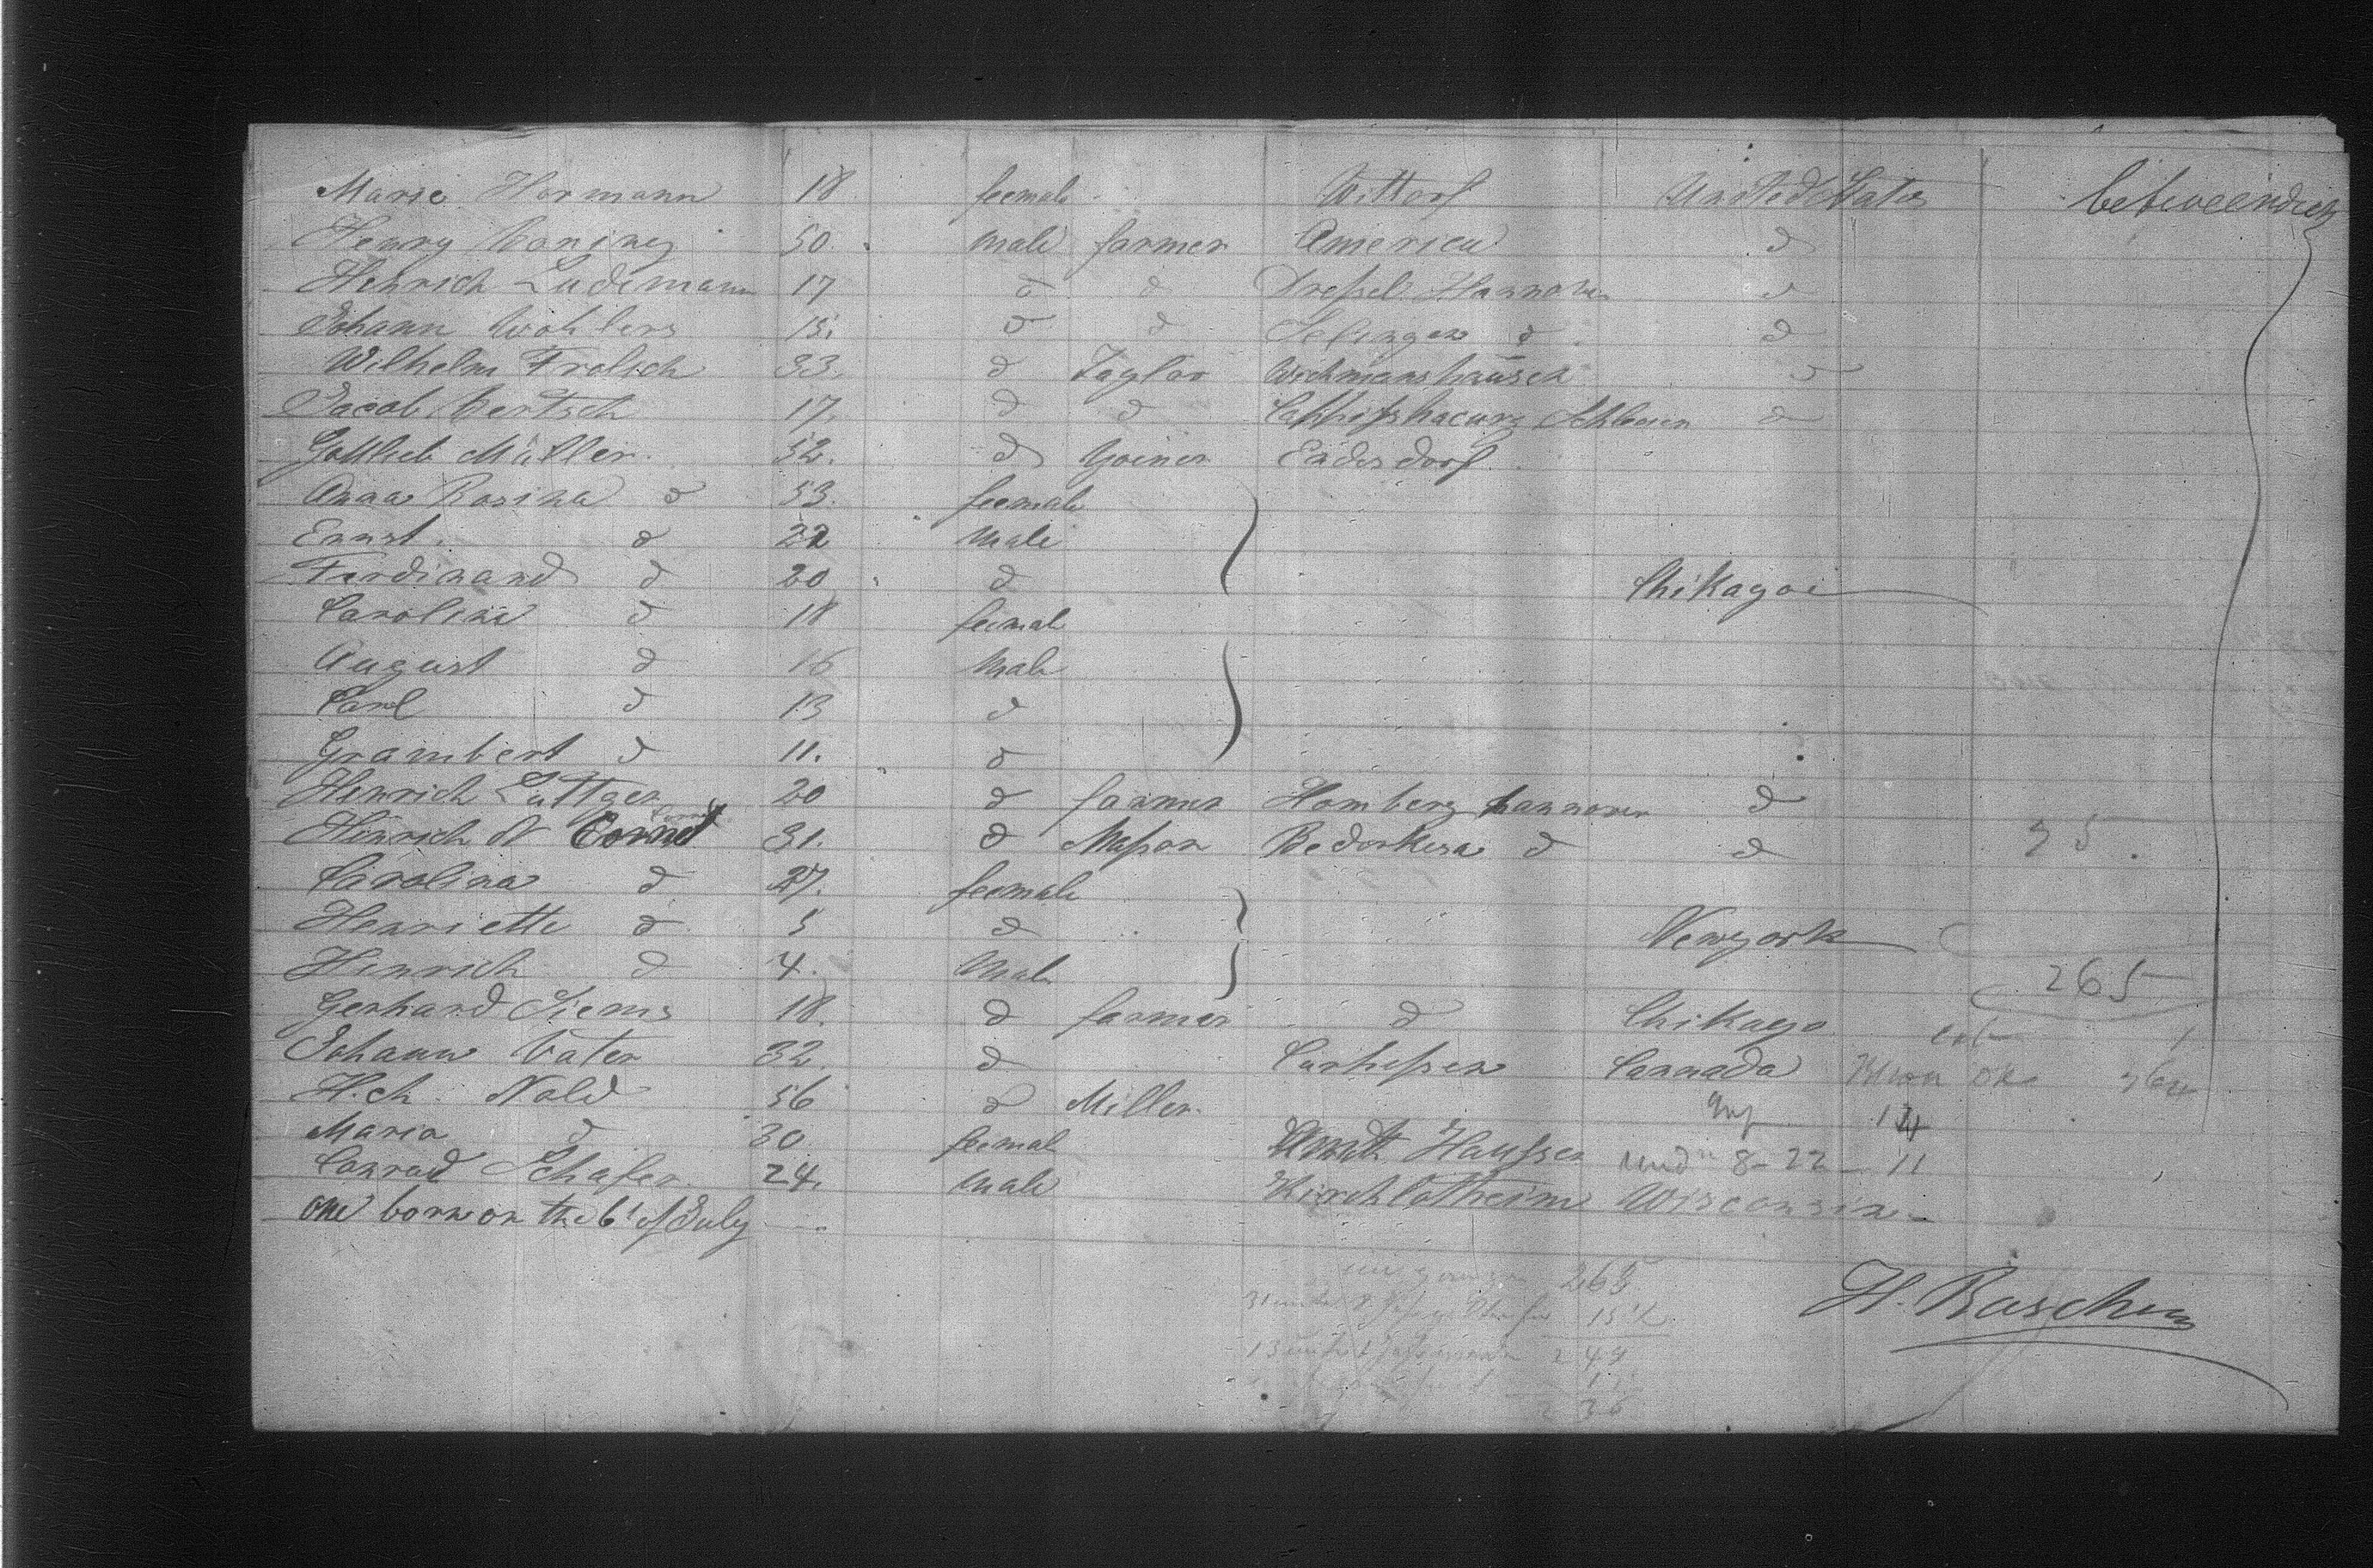 Marie Hormann 18 feemale Wittorf United States betweendeck
Henry Coning 50. male farmer America d
Hehrich Ludemann 17 d d Dreßel Hannover d
Johann Wohlers 15. d d Selingen d d
Wilhelm Frolich 33. d Taylor Wichmanshausen d
Jacob Bertsch 17. d d d
Gottlieb Müller. 52. d Yoiner Endersdorf
Anna Rosina d 53. feemale
Ernst. d 22 Male
Ferdinand d 20 d Chikago
Caroline d 18 feemale
August d 16 Male
Carl d 13 d
Grambert d 11. d
Hinrich Lüttgen 20 d farmer Homberg Hannover d
Hinrich Cornet 31. d Maßon Bedorkesa d d
Carolina d 27. feemale
Henriette d 5 d Newyork
Hinrich d 4. Male 265
Gerhard Siems 18. d farmer d Chikago
Johann Vater 32. d Curheßen Cannada
H.ch. Nold 56 d Miller.
Maria d 30 feemale 8-22 11
Conrad Schafer. 24. male Kirchlotheim Wisconsin
one born on the 6t of July
265
H. Raschen
249
236